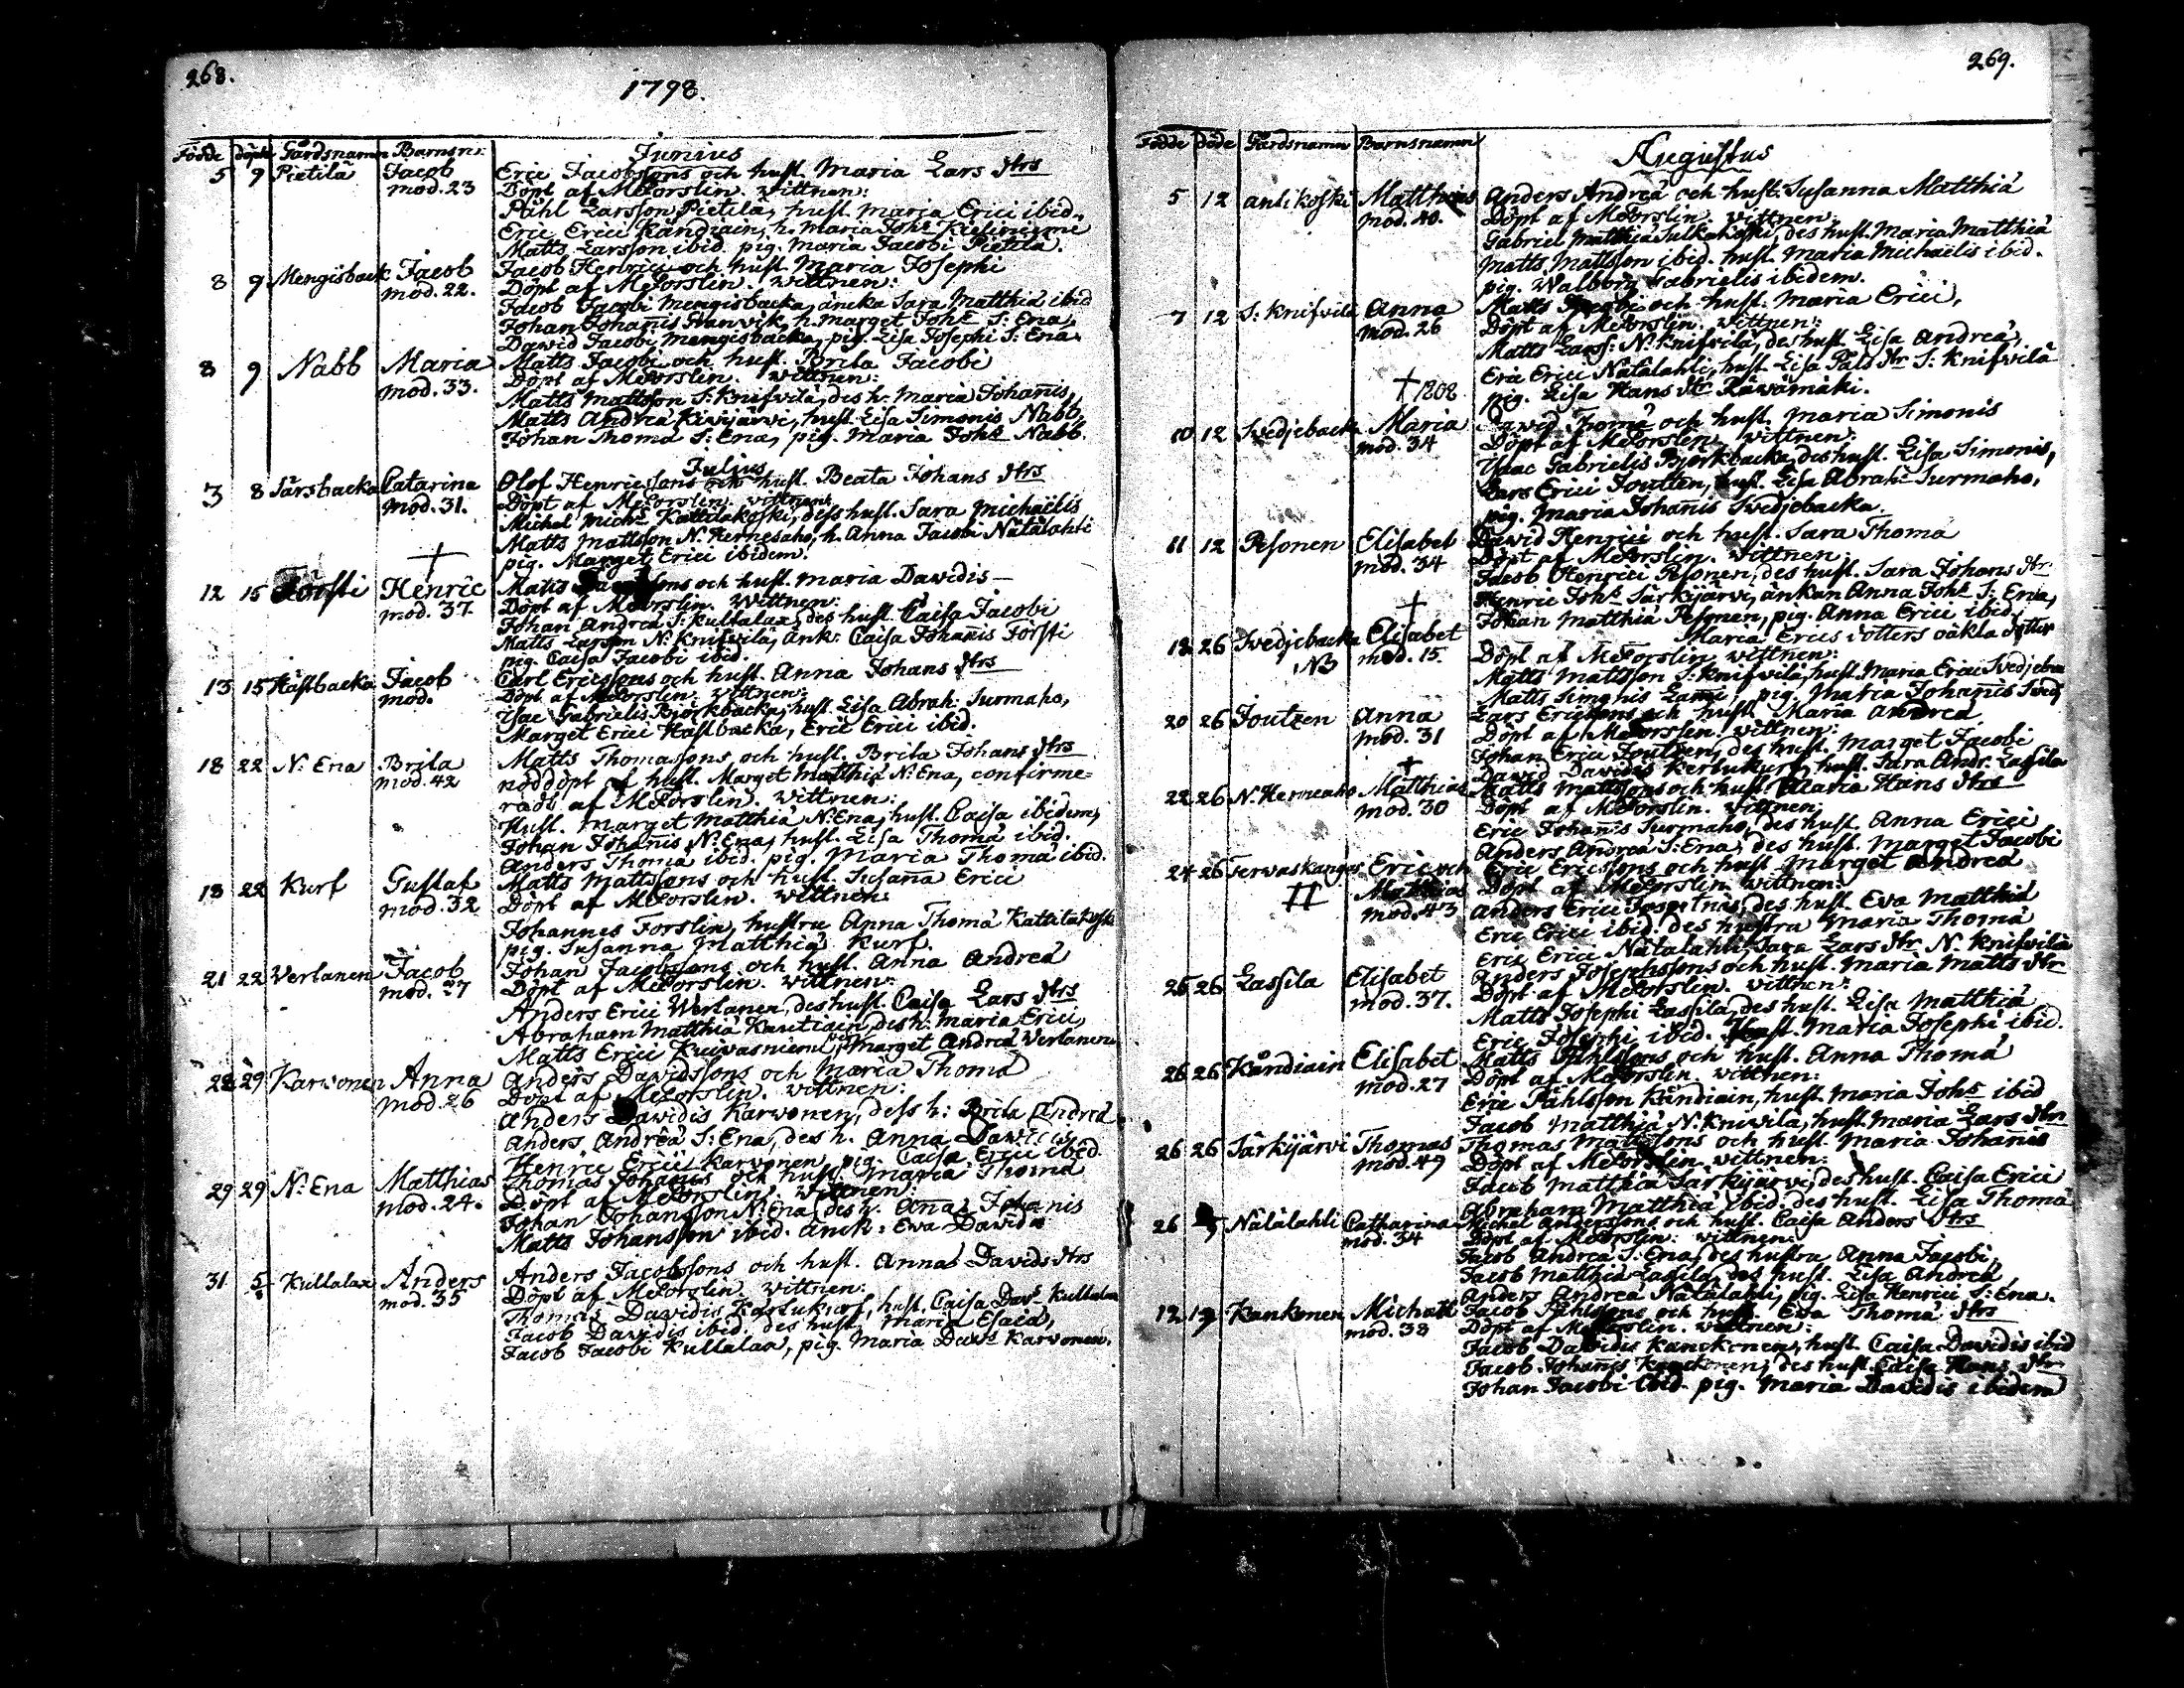 268.
1798.
Födde döpte Gårdsnamn Barnsn:
Junius
5 9 Pietilä Jacob Eric Jacobssons och hust. Maria Lars dtrs
mod. 23 Döpt af M. Forslin. Wittnen:
Påhl Larsson Pietilä, hust. Maria Erici ibid.
Eric Erici Kåndiain, h. Maria Joh:s
Matts Larsson ibid. pig. Maria Jacobi Pietilä.
8 9 Mengisback Jacob Jacob Henrici och hust. Maria Josephi
mod. 22. Döpt af M. Forslin. Wittnen:
Jacob Jacobi Mengisbacka, äncka Sara Matthiä ibid
Johan Johanis Granvik, h. Marget Joh:s S: Ena,
Dawid Jacobi Mengisbacka, pig. Lisa Josephi S: Ena
8 9 Nabb Maria Matts Jacobi och hust. Brita Jacobi
mod. 33. Döpt af M. Forslin. Wittnen:
Matts Mattsson S: Knifvilä, des h. Maria Johanis,
Matts Andreä Kivijärvi, hust. Lisa Simonis Nabb,
Johan Thomä S: Ena, pig. Maria Joh:s Nabb.
Julius
3 8 Särsbacka Catarina Olof Henricssons och hust. Beata Johans dtrs
mod. 31. Döpt af M. Forslin. Wittnen:
Michel Mich:s Kattilakoski, dess hust. Sara Michaëlis
Matts Mattsson N. Hernesaho, h. Anna Jacobi Nätälahti
pig. Marget Erici ibidem.
†
12 15 Försti Henric Matts och hust. Maria Dawidis
mod. 37. Döpt af M. Forslin. Wittnen:
Johan Andreä S: Kullalax, des hust. Caisa Jacobi
Matts Larsson N: Knifvilä, Änk: Caisa Johanis Försti
pig. Caisa Jacobi ibid.
13 15 Hästbacka Jacob Carl Ericssons och hust. Anna Johans dtrs
mod. Döpt af M. Forslin. Wittnen:
Isac Gabrielis Björkbacka, hust. Lisa Abrah: Surmaho,
Marget Erici Hästbacka, Eric Erici ibid.
18 22 N: Ena Brita Matts Thomassons och hust. Brita Johans dtrs
mod. 42 nöddöpt af hust. Marget Matthiä N: Ena, confirme-
radt af M. Forslin. Wittnen:
Hust. Marget Matthiä N: Ena, hust. Caisa ibidem,
Johan Johanis N: Ena, hust. Lisa Thomä ibid.
Anders Thomä ibid. pig. Maria Thomä ibid.
13 22 Kurf Gustaf Matts Mattssons och hust. Susana Erici
mod. 32 Döpt af M. Forslin. Wittnen:
Johannes Forslin, hustru Anna Thomä Kattilakoski
pig. Susanna Matthiä Kurf.
21 22 Verlanen Jacob Johan Jacobssons och hust. Anna Andreä
mod. 27 Döpt af M. Forslin. Wittnen:
Anders Erici Werlanen, des hust. Caisa Lars dtrs
Abraham Matthiä Kautiain, des h: Maria Erici,
Matts Erici Marget Andreä Verlanen
28 29 Karvonen Anna Anders Davidssons och Maria Thomä
mod. 26 Döpt af M. Forslin. Wittnen:
Anders Dawidis Karwonen, dess h: Brita Andreä
Anders Andreä S: Ena, des h. Anna Dawidis,
Henric Ericii Karvonen, pig. Caisa Erici ibid.
29 29 N: Ena Matthias Thomas Johanis och hust. Maria Thomä
mod. 24. Döpt af M. Forslin. Wittnen:
Johan Johansson N: Ena, des h. Ana Johanis
Matts Johansson ibid. änck: Ewa Dawidis
31 5 Kullalax Anders Anders Jacobssons och hust. Anna Davids dtrs
mod. 35 Döpt af M. Forslin. Wittnen:
Thomas Dawidis Kortukurf, hust. Caisa Dav:s Kullalax
Jacob Dawidis ibid. des hust. Maria Esaiä,
Jacob Jacobi Kullalax, pig. Maria Dav:s Karvonen.
269.
Födde döde Gårdsnamn Barnsnamn
Augustus
5 12 Antikoski Matthias Anders Andreä och hust. Susanna Matthiä
mod. 40. Döpt af M. Forslin. Wittnen:
Gabriel Matthiä Sulkakoski, des hust. Maria Matthiä
Matts Mattsson ibid. hust. Maria Michaëlis ibid.
pig. Walborg Gabrielis ibidem.
7 12 S: Knifvilä Anna Matts och hust. Maria Erici,
mod. 26 Döpt af M. Forslin. Wittnen:
Matts Larss: N: Knifvilä, des hust. Lisa Andreä,
Eric Erici Nätälahti, hust. Lisa Påls dtr S: Knifvilä
† 1808 pig. Lisa Hans dtr Räwämäki.
10 12 Svedjebacka Maria Dawid Thomä och hust. Maria Simonis
mod. 34 Döpt af M. Forslin. Wittnen:
Isaac Gabrielis Björkbacka, des hust. Lisa Simonis,
Lars Erici Joutsen, hust. Lisa Abrah:s Surmaho,
pig. Maria Johanis Svedjebacka.
11 12 Pesonen Elisabet David Henrici och hust. Sara Thomä
mod. 34 Döpt af M. Forslin. Wittnen:
Jacob Henrici Pesonen, des hust. Sara Johans dtr
Henric Joh:s Särkijärvi, änkan Anna Joh:s S: Ena,
† Johan Matthiä Pesonen, pig. Anna Erici ibid.
18 26 Svedjebacka Elisabet Maria Erics dotters oäkta dotter
NB mod. 15. Döpt af M. Forslin. Wittnen:
Matts Mattsson S: Knifvilä, hust. Maria Erici Svedjebac
Matts Simonis pig. Maria Johanis Svedj
20 26 Joutzen Anna Lars Ericssons och hust. Maria Andreä
mod. 31 Döpt af M. Forslin. Wittnen:
Johan Erici Joutzen, des hust. Marget Jacobi
† David Davidis Kertukurf, hust. Sara Andr: Lassila
22 26 N: Herneaho Matthias Matts Mattssons och hust. Maria Hans dtrs
mod. 30 Döpt af M. Forslin. Wittnen:
Eric Johanis Surmaho, des hust. Anna Erici
Anders Andreä S: Ena, des hust. Marget Jacobi
24 26 Terwaskangas Eric och Eric Ericssons och hust. Marget Andreä
Matthias Döpt af M. Forslin. Wittnen:
mod. 43 Anders Erici des hust. Eva Matthiä
Eric Erici ibid. des hustru Maria Thomä
Eric Erici Nätälahti, Sara Lars dtr N. Knifvilä
25 26 Lassila Elisabet Anders Josephssons och hust. Maria Matts dtr
mod. 37. Döpt af M. Forslin. Wittnen:
Matts Josephi Lassila, des hust. Lisa Matthiä
Eric Josephi ibid. hust. Maria Josephi ibid.
26 26 Kåndiain Elisabet Matts Påhlssons och hust. Anna Thomä
mod. 27 Döpt af M. Forslin. Wittnen:
Eric Påhlsson Kåndiain, hust. Maria Joh:s ibid
Jacob Matthiä N: Knivilä, hust. Maria Lars dtr
26 26 Särkijärvi Thomas Thomas Mattssons och hust. Maria Johanis
mod. 49 Döpt af M. Forslin. Wittnen:
Jacob Matthiä Särkijärvi, des hust. Caisa Erici
Abraham Matthiä ibid. des hust. Lisa Thomä
26 Nätälahti Catharina Michel Anderssons och hust. Caisa Anders dtrs
mod. 34 Döpt af M. Forslin: Wittnen:
Jacob Andreä S: Ena, des hustru Anna Jacobi,
Jacob Matthiä Lassila, des hust. Lisa Andreä
Anders Andreä Nätälahti, pig. Lisa Henrici S: Ena.
12 19 Kankonen Michaël Jacob Påhlssons och hust. Eva Thomä dtrs
mod. 38 Döpt af M. Forslin. Wittnen:
Jacob Davidis Kanckonen, hust. Caisa Davidis ibid
Jacob Johanis Kanckonen, des hust. Caisa Hans dtr
Johan Jacobi ibid. pig. Maria Davidis ibidem